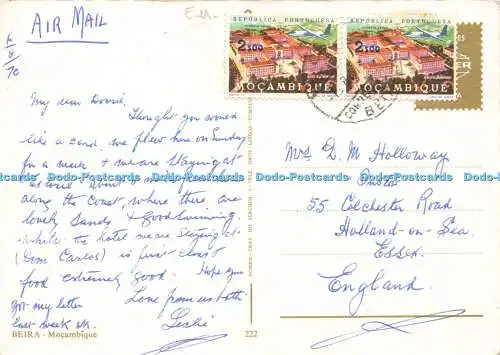 AIR MAIL
6/8/70
REPÚBLICA PORTUGUESA
2$00
MOÇAMBIQUE
REPÚBLICA PORTUGUESA
2$00
MOÇAMBIQUE
My dear Donnie,
Thought you would
like a card, we flew here on Sunday
for a week & we are staying at
about
along the Coast, where there are
lovely Sands & Good Swimming.
the hotel we are staying at
(Dom Carlos) is first class
food extremely good. Hope you
got my letter
last week
Love from us both
Leslie
Mrs D. M Holloway
55 Colchester Road
Holland-on-Sea.
Essex.
England.
BEIRA - Moçambique
222
Dodo-Postcards Dodo-Postcards Dodo-Postcards Dodo-Postcards Dodo-Postcards